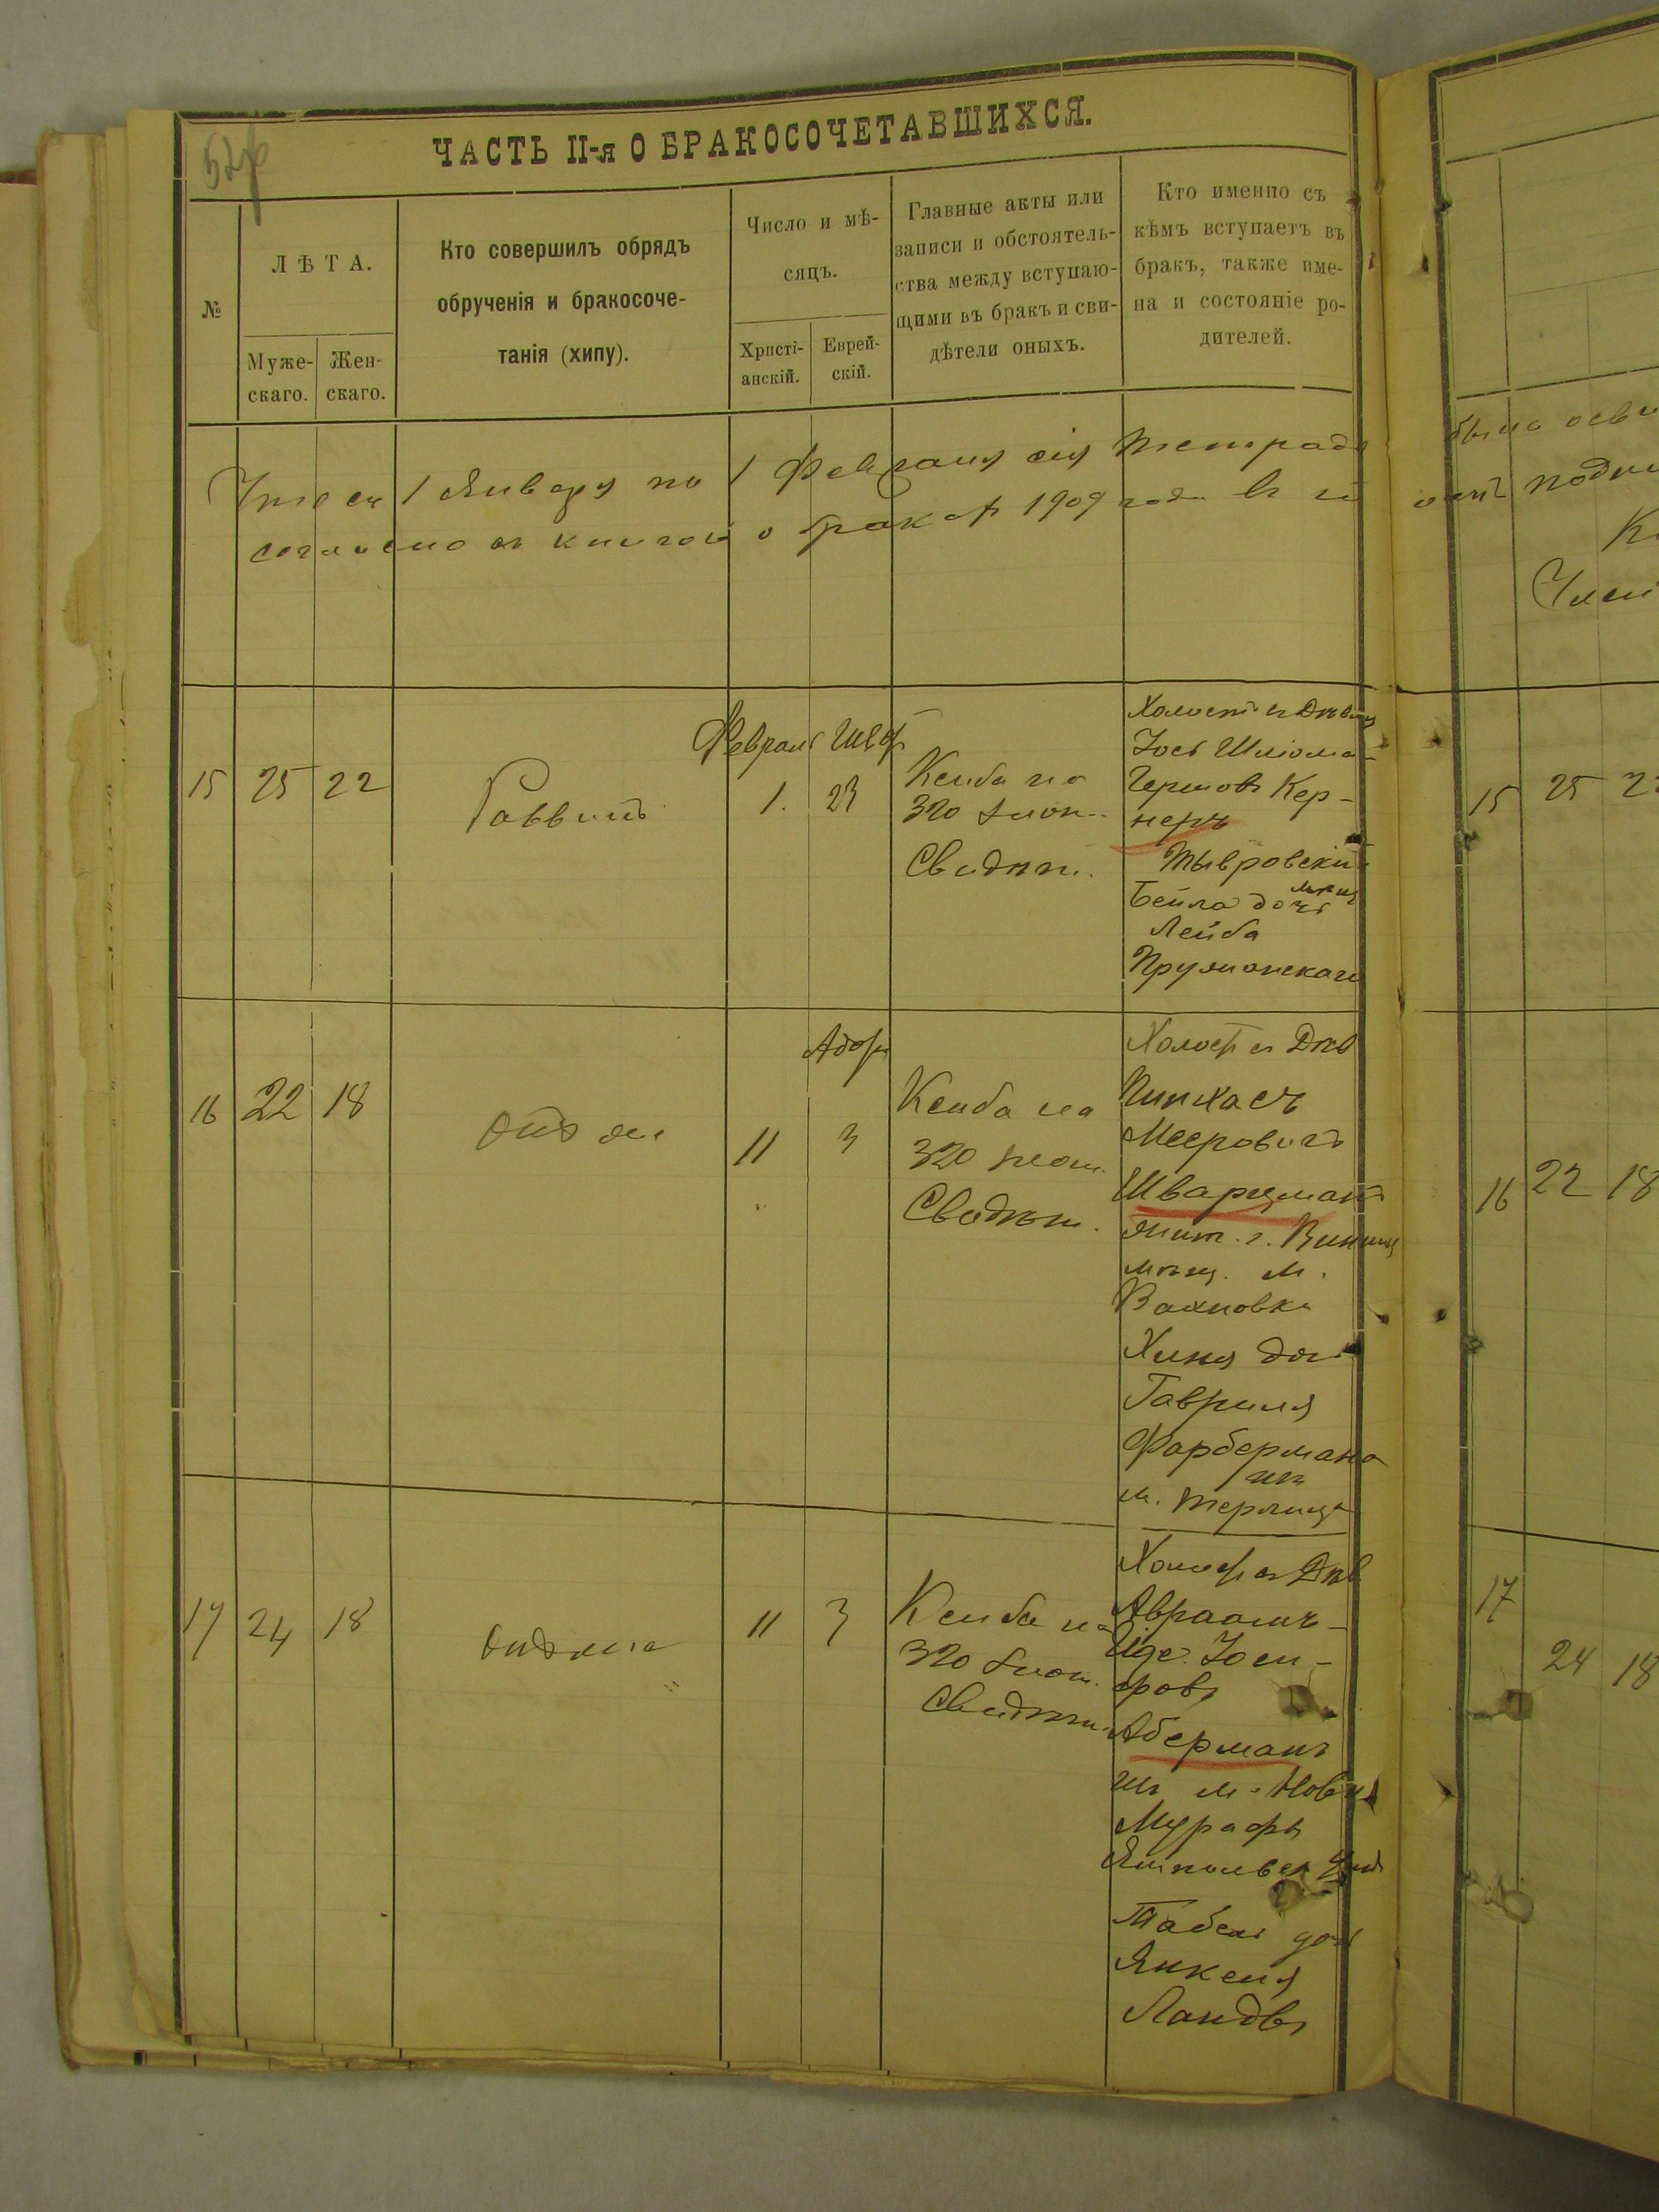 ЧАСТЬ II-я О БРАКОСОЧЕТАВШИХСЯ.
№
ЛѢТА.
Муже-
скаго.
Жен-
скаго.
Кто совершилъ обрядъ
обрученія и бракосоче-
танія (хипу).
Число и мѣ-
сяцъ.
Христі-
анскій.
Еврей-
скій.
Главные акты или
записи и обстоятель-
ства между вступаю-
щими въ бракъ и сви-
дѣтели оныхъ.
Кто именно съ
кѣмъ вступаетъ въ
бракъ, также име-
на и состояніе ро-
дителей.
Что съ 1 Января по 1 Февраля сія тетрадь
согласно съ книгой о бракахъ 1909 года въ
15 25 22
Раввинъ
Февраль
1. 23
Ксиба на
320 злот.
Свидѣт.
Холостъ съ Дѣвиц
Іось Шліома-
Гершовъ Кер-
неръ
Тывровскій
мѣщ
Бейла дочь
Лейба
Прузианскаго
16 22 18
Онъ же
Адаръ
11 3
Ксиба на
320 злот.
Свидѣт.
Холост съ Дѣв
Пинхасъ
Мееровичъ
Шварцманъ
жит. г. Винниц
мѣщ. м.
Вахновка
Хиня доч
Гавриля
Фарбермана
изъ
м. Терлица
17 24 18
Онъ же
11 3
Ксиба на
320 злот.
Свидѣт.
Холост съ Дѣв
Авраамъ-
Иде. Іоси-
фовъ
Аберманъ
изъ м. Новая
Мурафы
Ямпольск Уѣзд
Табель доч
Янкеля
Ландвъ
15 25 22
16 22 18
17
24 18